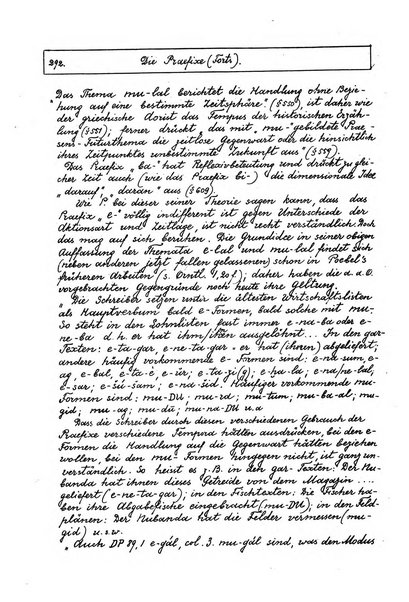 292. Die Praefixe (Forts.).
"Das Thema mu-lal berichtet die Handlung ohne Bezie-
hung auf eine bestimmte Zeitsphäre" (§ 550), ist daher wie
der griechische Aorist das Tempus der historischen Erzäh-
lung (§ 551); ferner drückt das mit "mu-" gebildete Prae-
sens-Futurthema die zeitlose Gegenwart oder die hinsichtlich
ihres Zeitpunktes unbestimmte Zukunft aus" (§ 559).
Das Praefix "ba-" hat Reflexivbedeutung und drückt zu glei-
cher Zeit auch (wie das Praefix bi-) die dimensionale Idee
"darauf", "daran" aus (§ 608).
Wie P. bei dieser seiner Theorie sagen kann, dass das
Praefix "e-" völlig indifferent ist gegen Unterschiede der
Aktionsart und Zeitlage, ist nicht recht verständlich. Doch
das mag auf sich beruhen. Die Grundidee in seiner obigen
Auffassung der Themata e-lal und mu-lal findet sich
(neben anderen jetzt fallen gelassenen) schon in Poebel's
früheren Arbeiten (s. Orntl. 1, 20 f.); daher haben die a. a. O.
vorgebrachten Gegengründe noch heute ihre Geltung.
"Die Schreiber setzen in die ältesten Wirtschaftslisten
als Hauptverbum bald e-Formen, bald solche mit mu-.
So steht in den Lohnlisten fast immer e-na-ba oder e-
ne-ba d. h. er hat ihm/ihnen ausgelöhnt... In den gar-
Texten: e-ta-gar, e-ne-ta-gar = er hat (ihnen) abgeliefert,
andere häufig vorkommende e-Formen sind: e-na-sum, e-
ag, e-bal, e-ta-è, e-ùr; e-ta-zi(g); e-ha-la; e-na-pe-lal,
e-sar; e-šú-šam; e-na-šid. Häufiger vorkommende mu-
Formen sind: mu-DU; mu-rá; mu-túm; mu-ba-al; mu-
gíd; mu-ug; mu-dù; mu-na-DU u. a.
Dass die Schreiber durch diesen verschiedenen Gebrauch der
Praefixe verschiedene Tempora hätten ausdrücken, bei den e-
Formen die Handlung auf die Gegenwart hätten beziehen
wollen, bei den mu-Formen hingegen nicht, ist ganz un-
verständlich. So heisst es z. B. in den gar-Texten: Der Nu-
banda hat ihnen dieses Getreide von dem Magazin ....
geliefert (e-ne-ta-gar); in den Fischtexten: Die Fischer ha-
ben ihre Abgabefische eingebracht (mu-DU); in den Feld-
plänen: Der Nubanda hat die Felder vermessen (mu-
gíd) u. s. w.
"Auch DP 89, 1 e-gál, col. 3. mu-gál sind, was den Modus